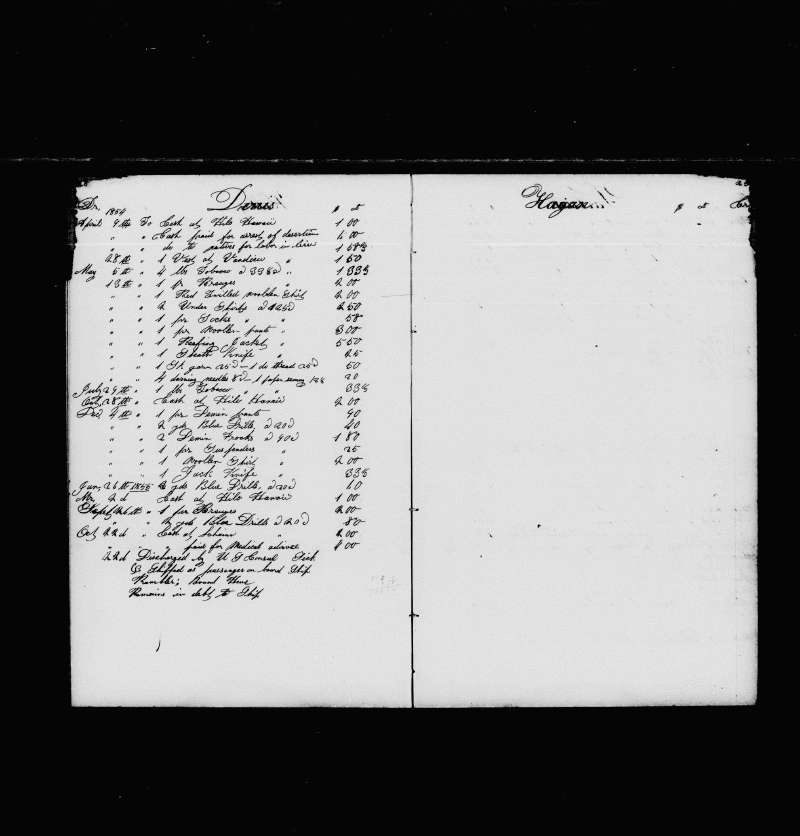 Dr. Denis
1854 $ ct
April 9th To Cash at Hilo Hawaii 1 00
" " " Cash paid for arrest of desertion 6 00
" " " do to native for labor in lieu 1 58⅓
" 28th " 1 Vest at 1 50
May 5th " 4 lbs Tobacco a 33⅓ " 1 33⅓
13th " 1 pr Brauges 2 00
" " 1 Red Twilled woollen Shirt 2 00
" " 2 Under Shirts a 1 25 2 50
" " 1 pr Socks " " 58
" " 1 pr Woollen pants " 3 00
" " 1 Reefing Jacket " 5 50
" " 1 Sheath Knife " 25
" " 1 Sk yarn 25 — 1 do thread 25 50
" " 4 darning needles 8 — 1 paper 20
July 29th " 1 lb Tobacco " " 33⅓
Oct 28th " Cash at Hilo Hawaii 2 00
Dec 4th " 1 pr Denim pants 90
" " 2 yds Blue Drills a 20 40
" " 2 Denim Frocks a 90 1 80
" " 1 pr Suspenders 25
" " 1 Woollen Shirt " 2 00
" " 1 Jack Knife " 33⅓
Jan 26th 1855 yds Blue Drills a 20 60
Mr 2d Cash at Hilo Hawaii 1 00
Sept 26th " 1 pr Brauges 2 00
" " yds Blue Drills a 20 80
Oct 22d " Cash at Lahaina " 2 00
" " " paid for Medical advice 4 00
22d Discharged by U S Consul Sick
& Shipped as passenger on board Ship
Rambler; Bound Home
Remains in debt to Ship
Hagan
$ ct Cr